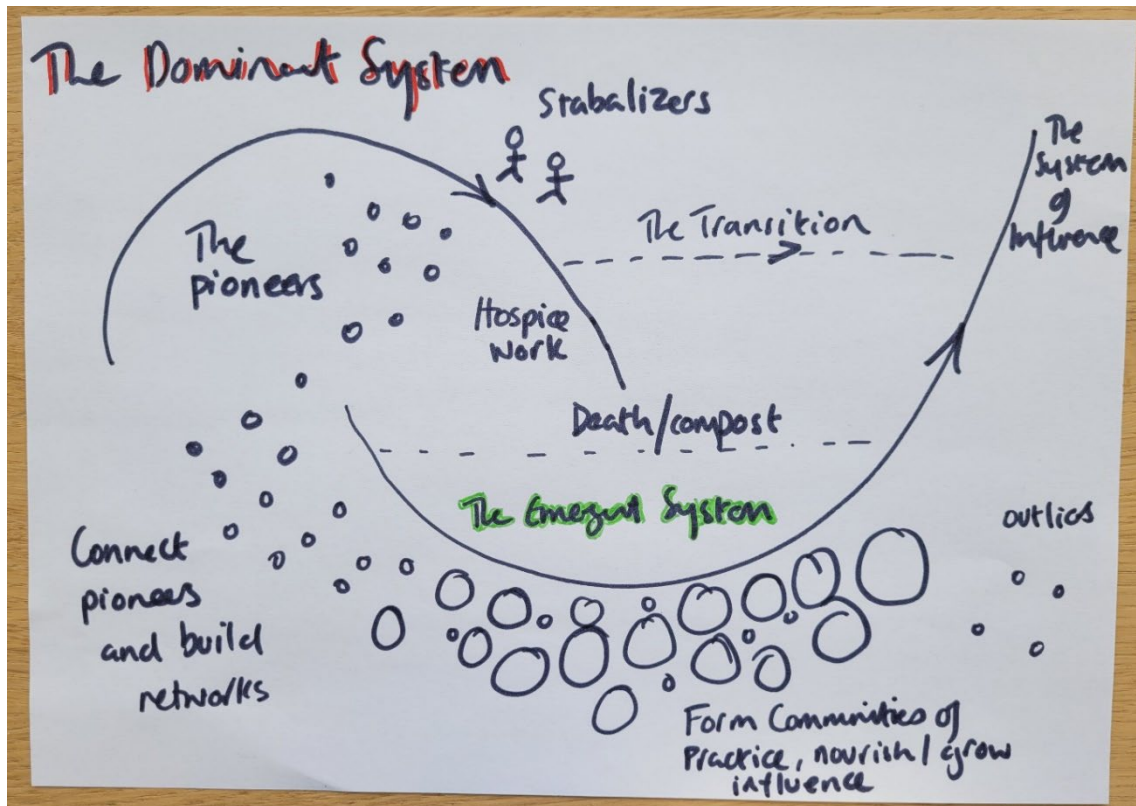 The Dominant System
Stabalizers
The
System
of
Infuence
The
pioneers
The Transition
Hospice
work
Death/compost
The Emergent System
outlies
Connect
pioneers
and build
networks
Form Communities of
Practice, nourish/grow
influence